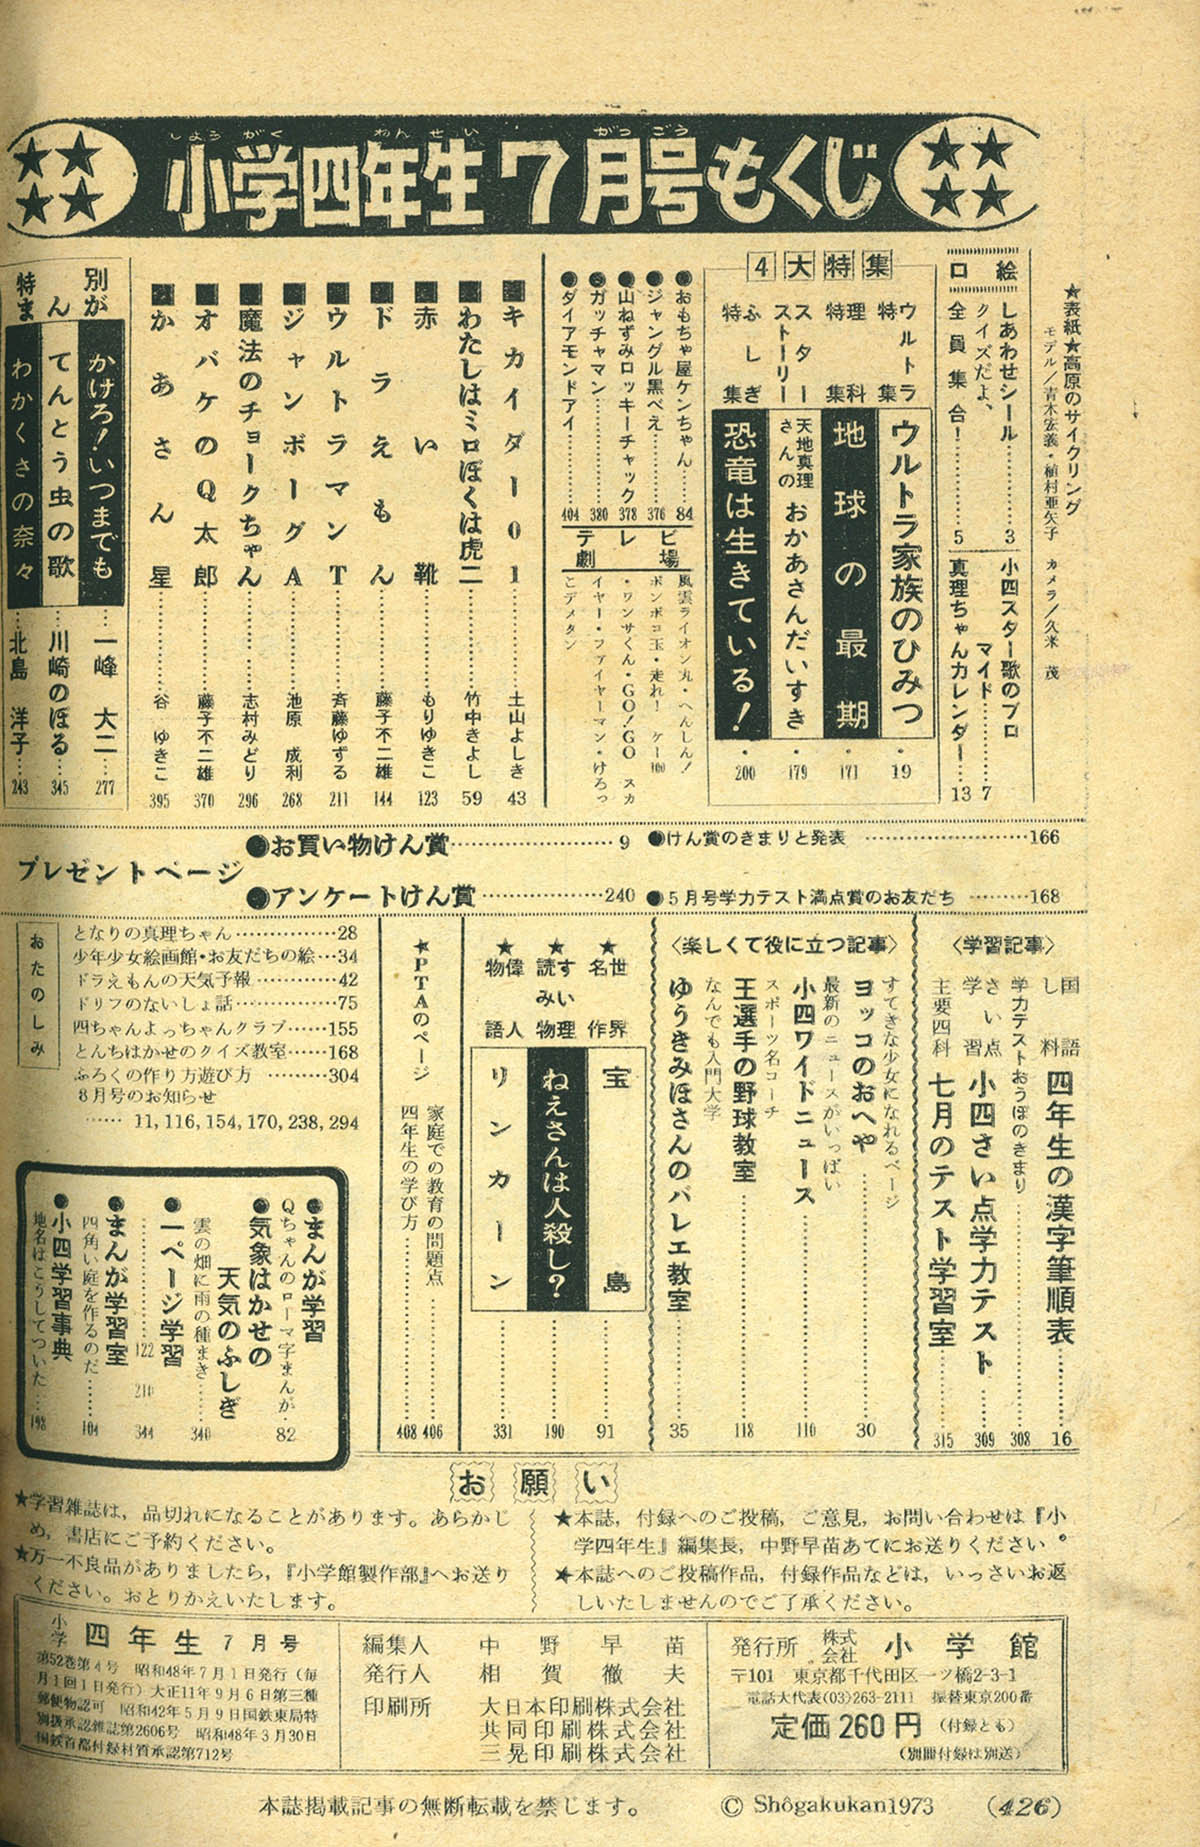 小学四年生7月号もくじ
しょうがく ねんせい がつごう
★表紙★高原のサイクリング
モデル/青木宏義・植村亜矢子 カメラ/久米 茂
口絵
しあわせシール……3
クイズだよ、全員集合!……5
小四スター歌のブロマイド……7
真理ちゃんカレンダー…13
4大特集
ウルトラ特集 ウルトラ家族のひみつ・19
理科特集 地球の最期・171
スターストーリー 天地真理さんの おかあさんだいすき・179
ふしぎ特集 恐竜は生きている!・200
●おもちゃ屋ケンちゃん……84
●ジャングル黒べえ……376
●山ねずみロッキーチャック 378
●ガッチャマン……380
●ダイアモンドアイ……404
テレビ劇場
風雲ライオン丸・へんしん!
ポンポコ玉・走れ! ケー100
・ワンサくん・GO!GO スカ
イヤー・ファイヤーマン・けろっ
こデメタン
■キカイダー01……土山よしき 43
■わたしはミロぼくは虎二……竹中きよし 59
■赤い靴……もりゆきこ 123
■ドラえもん……藤子不二雄 144
■ウルトラマンT……斉藤ゆずる 211
■ジャンボーグA……池原成利 268
■魔法のチョークちゃん……志村みどり 296
■オバケのQ太郎……藤子不二雄 370
■かあさん星……谷ゆきこ 395
特別まんが
かけろ!いつまでも……一峰大二…277
てんとう虫の歌……川崎のぼる…345
わかくさの奈々……北島洋子…243
プレゼントページ
●お買い物けん賞……9
●アンケートけん賞……240
●けん賞のきまりと発表……166
●5月号学力テスト満点賞のお友だち……168
〈学習記事〉
国語し料 四年生の漢字筆順表……16
学力テストおうぼのきまり……308
さい点学習 小四さい点学力テスト……309
主要四科 七月のテスト学習室……315
〈楽しくて役に立つ記事〉
すてきな少女になれるページ
ヨッコのおへや……30
最新のニュースがいっぱい
小四ワイドニュース……110
スポーツ名コーチ
王選手の野球教室……118
なんでも入門大学
ゆうきみほさんのバレエ教室……35
★世界名作 宝島……91
★すいり読み物 ねえさんは人殺し?……190
★偉人物語 リンカーン……331
★PTAのページ
家庭での教育の問題点……406
四年生の学び方……408
おたのしみ
となりの真理ちゃん……28
少年少女絵画館・お友だちの絵…34
ドラえもんの天気予報……42
ドリフのないしょ話……75
四ちゃんよっちゃんクラブ……155
とんちはかせのクイズ教室……168
ふろくの作り方遊び方……304
8月号のお知らせ
…… 11, 116, 154, 170, 238, 294
●まんが学習
Qちゃんのローマ字まんが・82
●気象はかせの天気のふしぎ
雲の畑に雨の種まき……340
●一ページ学習
……122 210 344
●まんが学習室
四角い庭を作るのだ……104
●小四学習事典
地名はこうしてついた…198
お願い
★本誌,付録へのご投稿,ご意見,お問い合わせは『小
学四年生』編集長,中野早苗あてにお送りください。
★本誌へのご投稿作品,付録作品などは,いっさいお返
しいたしませんのでご了承ください。
★学習雑誌は,品切れになることがあります。あらかじ
め,書店にご予約ください。
★万一不良品がありましたら,『小学館製作部』へお送り
ください。おとりかえいたします。
小学四年生7月号
第52巻第4号 昭和48年7月1日発行(毎
月1回1日発行)大正11年9月6日第三種
郵便物認可 昭和42年5月9日国鉄東局特
別扱承認雑誌第2606号 昭和48年3月30日
国鉄首都付録材質承認第712号
編集人 中野早苗
発行人 相賀徹夫
印刷所 大日本印刷株式会社
共同印刷株式会社
三晃印刷株式会社
発行所 株式会社 小学館
〒101 東京都千代田区一ツ橋2-3-1
電話大代表(03)263-2111 振替東京200番
定価260円(付録とも)
(別冊付録は別送)
本誌掲載記事の無断転載を禁じます。
© Shôgakukan1973
(426)